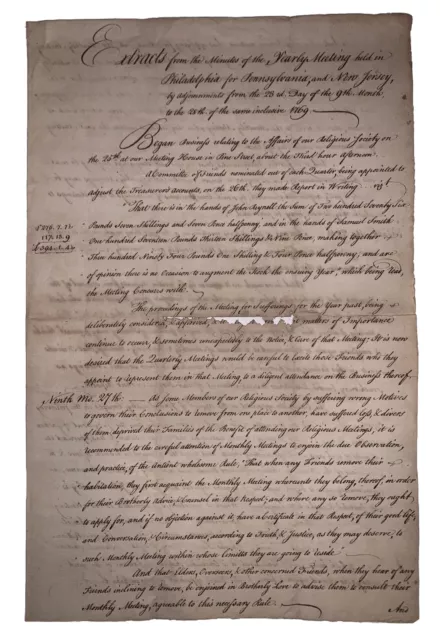 Extracts from the Minutes of the Yearly Meeting held in
Philadelphia for Pennsylvania, and New Jersey,
by adjournments from the 23d. Day of the 9th. Month
to the 28th. of the same inclusive 1769
Began Business relating to the Affairs of our Religious Society on
the 25th at our Meeting House in Pine Street, about the Third hour afternoon.
A Committee of Friends nominated out of each Quarter, being appointed to
adjust the Treasurers accounts, on the 26th. they make Report in Writing
That there is in the hands of John Reynell the Sum of Two hundred Seventy Six
Pounds Seven Shillings and Seven Pence halfpenny, and in the hands of Samuel Smith
One hundred Seventeen Pounds Thirteen Shillings & Nine Pence, making together
Three hundred Ninety Four Pounds One Shilling & Four Pence halfpenny; and are
of opinion there is no Occasion to augment the Stock the ensuing Year," which being read,
the Meeting Concurs with.
The proceedings of the Meeting for Sufferings for the Year past, being
deliberately considered, & approved, and matters of Importance
continue to occur, & sometimes unexpectedly to the notice, & Care of that Meeting: It is now
desired that the Quarterly Meetings would be careful to excite those Friends who they
appoint to represent them in that Meeting, to a diligent attendance on the Business thereof.
Ninth Mo. 27th: As some Members of our Religious Society by suffering wrong Motives
to govern their Conclusions to remove from one place to another, have suffered Loss, & divers
of them deprived their Families of the Benefit of attending our Religious Meetings, it is
recommended to the careful attention of Monthly Meetings to enjoin the due Observation,
and practice, of the antient wholesome Rule, "That when any Friends remove their
habitation, they first acquaint the Monthly Meeting whereunto they belong, thereof, in order
for their Brotherly Advice, & Counsel in that Respect; and where any so remove, they ought
to apply for, and if no objection against it, have a Certificate in that Respect, of their good life,
and Conversation, & Circumstances, according to Truth & Justice, as they may deserve; to
such Monthly Meeting within whose Limitts they are going to reside."
And that Elders, Overseers, & other concerned Friends, when they hear of any
Friends inclining to remove, be enjoined in Brotherly Love to advise them to consult their
Monthly Meeting, agreeable to this necessary Rule.
And